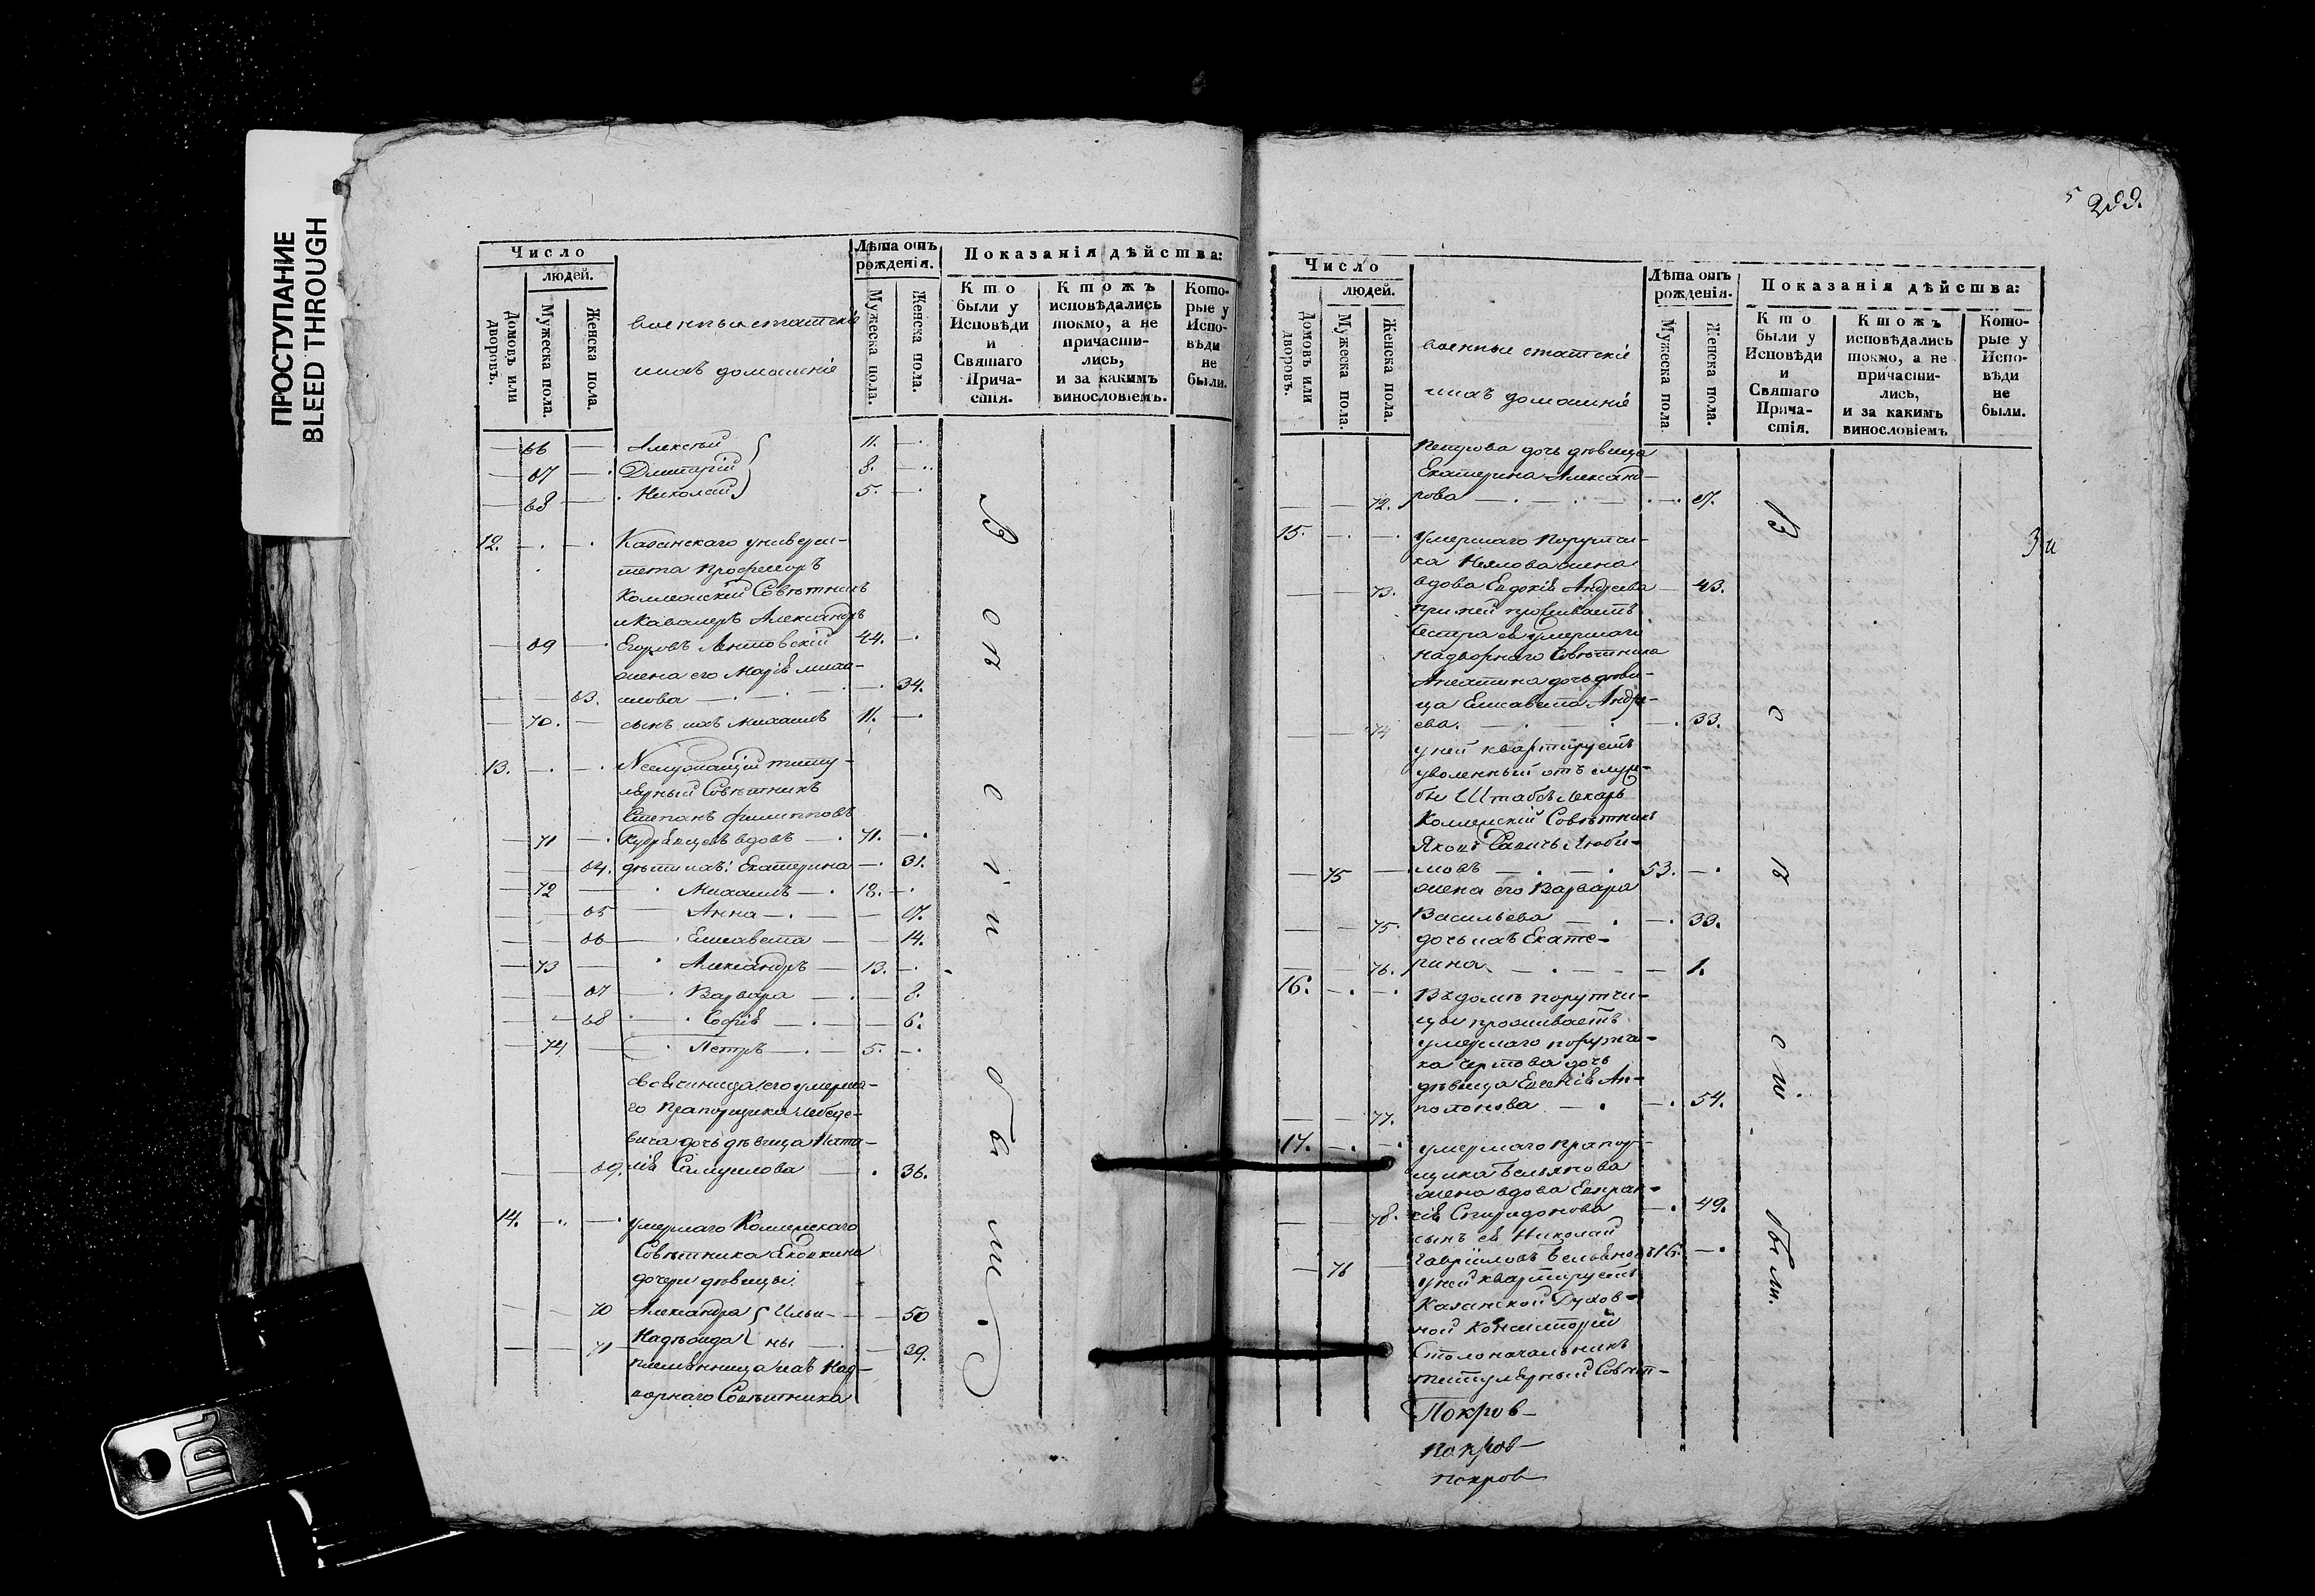 ПРОСТУПАНИЕ
BLEED THROUGH
Число
людей.
Домовъ или дворовъ.
Мужеска пола.
Женска пола.
военные статскіе
и ихъ домашніе
Лѣта отъ рожденія.
Мужеска пола.
Женска пола.
Показанія дѣйства:
Кто были у Исповѣди и Святаго Причастія.
Ктожъ исповѣдались токмо, а не причастились, и за какимъ винословіемъ.
Которые у Исповѣди не были.
66 Алексѣй 11.
67 Дмитрій 8.
68 Николай 5.
12. Казанскаго универси-
тета Профессоръ
Коллежскій Совѣтникъ
и Кавалеръ Александръ
69 Егоровъ Лентовскій 44.
жена его Марія Михаи-
63. лова 34.
70. сынъ ихъ Михаилъ 11.
13. Неслужащій титу-
лярный Совѣтникъ
Степанъ Филипповъ
71 Кудрявцевъ вдовъ 71.
64. дѣти ихъ: Екатерина 31.
72 Михаилъ 18.
65 Анна 17.
66 Елисавета 14.
73 Александръ 13.
67 Варвара 8.
68 Софія 6.
74 Петръ 5.
свояченица его умерша-
го Прапорщика Лебеде-
вича дочь дѣвица Ната-
69. лія Самуилова 36.
14. умершаго Коллежскаго
Совѣтника
дочери дѣвицы
70 Александра } Ильи- 50
71 Надежда } ны 39.
племянница ихъ Над-
ворнаго Совѣтника
299.
Число
людей.
Домовъ или дворовъ.
Мужеска пола
Женска пола.
военные статскіе
и ихъ домашніе
Лѣта отъ рожденія.
Мужеска пола
Женска пола.
Показанія дѣйства:
Кто были у Исповѣди и Святаго Причастія.
Ктожъ исповѣдались токмо, а не причастились, и за какимъ винословіемъ
Которые у Исповѣди не были.
Петрова дочь дѣвица
Екатерина Александ-
72. рова 27.
15. умершаго Поручи-
ка жена
73. вдова Евдокія Андреева 43.
при ней проживаетъ
сестра ея умершаго
Надворнаго Совѣтника
дочь дѣви-
ца Елисавета Андре-
74 ева. 33.
у ней квартируетъ
уволенный отъ служ-
бы Штабъ Лекарь
Коллежскій Совѣтникъ
Яковъ Савичъ Люби-
75 мовъ 53.
жена его Варвара
75. Васильева 33.
дочь ихъ Екате-
76. рина 1.
16. Въ домѣ поручи-
цы проживаетъ
умершаго поручи-
ка Чертова дочь
дѣвица Евгенія Ап-
77. полонова 54.
17. умершаго Прапор-
щика Бельянова
жена вдова Евпрак-
78. сія Спиридонова 49.
сынъ ея Николай
76 Гавриловъ Бельяновъ 16.
у ней квартируетъ
Казанской Духов-
ной Консисторіи
Столоначальникъ
титулярный Совѣт-
Покров-
покров-
покров